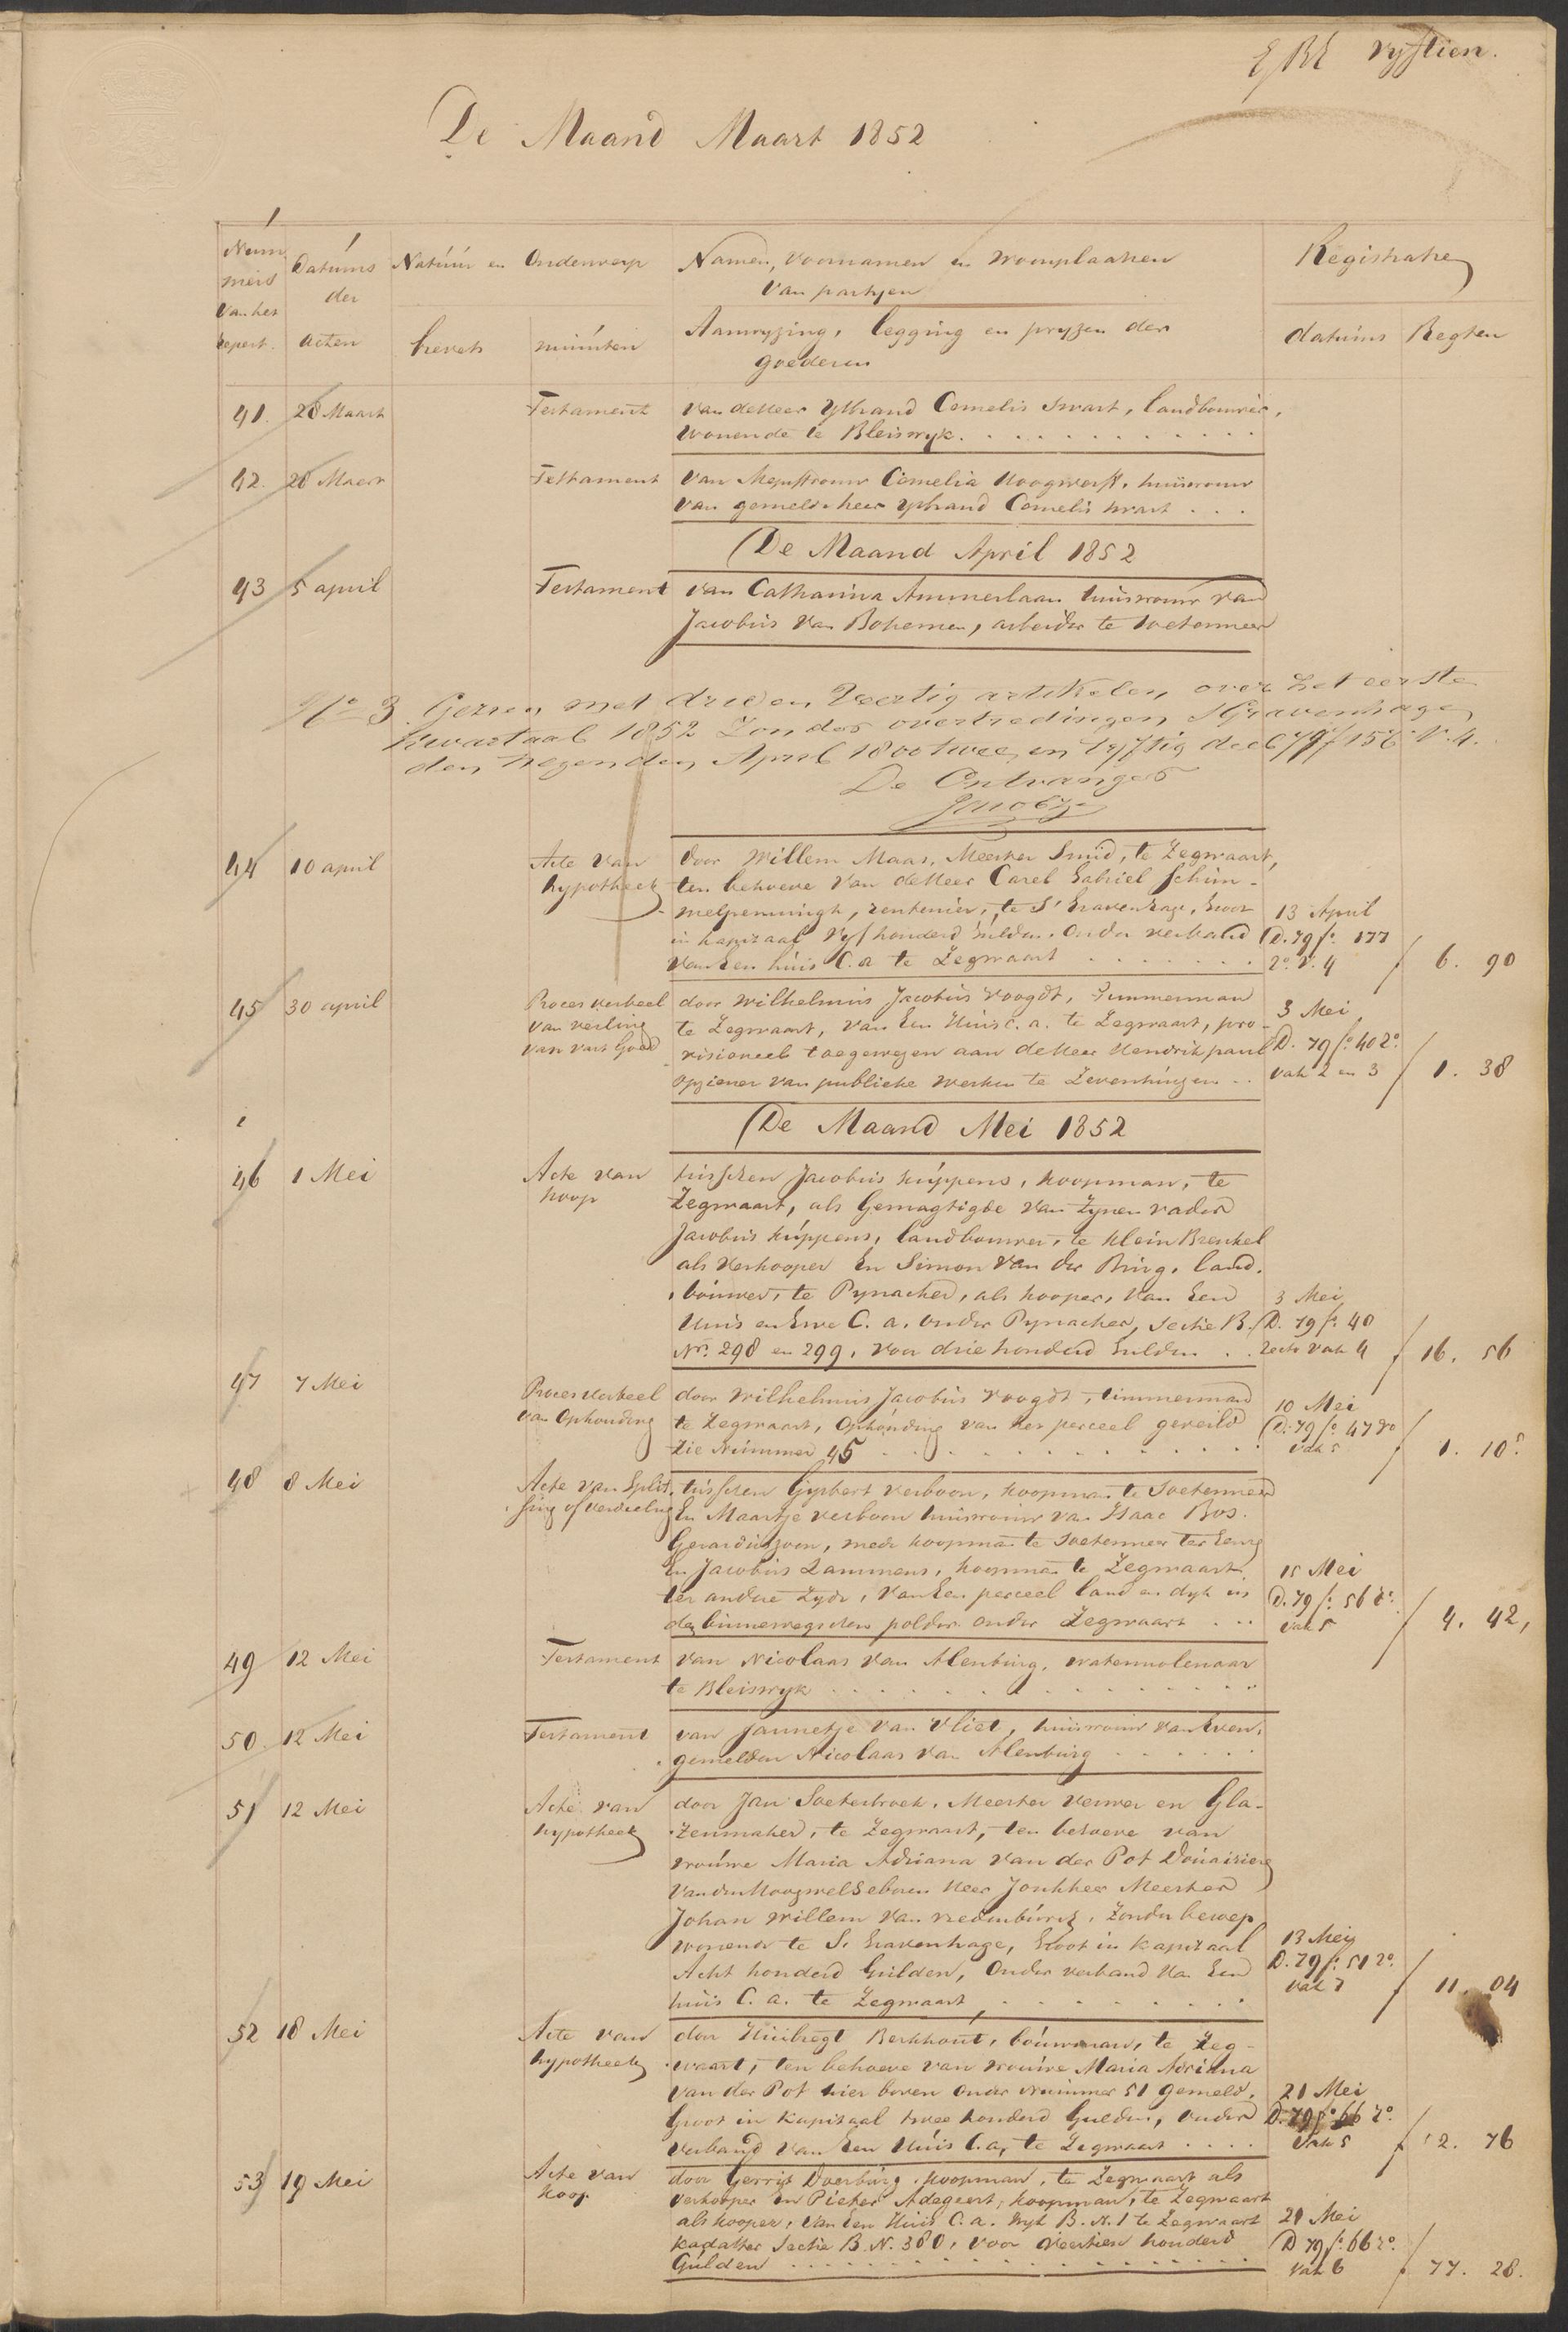 vyftien.
De Maand Maart 1852
Num
mers
van het
repert.
datums
der
acten
Natuur en Onderwerp
brevets
minuten
Namen, voornamen en Woonplaatsen
van partyen
Aanwyzing, legging en pryzen der
goederen
Registratie
datums
Regten
41. 28 Maart Testament van de Heer Ysbrand Cornelis Swart, landbouwer,
wonende te Bleiswyk.
42. 28 Maart Testament van Mejuffrouw Cornelia Hoogwerff, huisvrouw
van gemelde heer Ysbrand Cornelis Swart
De Maand April 1852
43 5 april Testament van Catharina Ammerlaan huisvrouw van
Jacobus van Bohemen, arbeider te Soetermeer
No 3. Gezien met drie en Veertig artikelen over het eerste
kwartaal 1852 Zonder overtredingen S Gravenhage
den negenden April 1800 twee en vyftig deel 79 f 156 V. 4.
De Ontvanger
44 10 april Acte van
hypotheek
door Willem Maas, Meester Smid, te Zegwaart,
ten behoeve van de Heer Carel Gabriel Schim-
melpenningh, rentenier, te S' Gravenhage, groot
in kapitaal vyf honderd gulden. Onder verband
van een huis C. a te Zegwaart
13 April
D. 79 fo. 177
ro. v. 4
6. 90
45 30 april Proces verbaal
van veiling
van vast Goed
door Wilhelmus Jacobus Voogdt, Timmerman
te Zegwaart, van Een Huis c. a. te Zegwaart, pro-
visioneel toegewezen aan de Heer Hendrik paul
opziener van publieke werken te Zevenhuizen
3 Mei
D. 79 fo. 40 ro.
vak 2 en 3
1. 38
De Maand Mei 1852
46 1 Mei Acte van
koop
tusschen Jacobus Kuppens, koopman, te
Zegwaart, als Gemagtigde van Zynen vader
Jacobus Kuppens, landbouwer, te Klein
als Verkooper En Simon van der Burg, land-
bouwer, te Pynacker, als kooper, van Een
Huis en Erve C. a. onder Pynacker, Sectie B.
No. 298 en 299, voor driehonderd Gulden
3 Mei
D. 79 fo. 40
recto vak 4
16. 56
47 7 Mei Proces verbaal
van Ophouding
door Wilhelmus Jacobus Voogdt, timmerman
te Zegwaart, Ophouding van het perceel geveild
zie Nummer 45
10 Mei
D. 79 fo 47 vo
vak 5
1. 10 5
48 8 Mei Acte van Split-
sing of verdeeling
tusschen Gysbert Verboon, koopman te Soetermeer
En Maartje verboon huisvrouw van Isaac Bos.
Gerarduszoon, mede koopman te Soetermeer ter Eene
En Jacobus Lammens, koopman te Zegwaart
ter andere Zyde, van Een perceel land en dyk in
de binnenwegschen polder onder Zegwaart
15 Mei
D. 79 fo. 56 ro.
vak 5
4. 42,
49 12 Mei Testament van Nicolaas van Alenburg, watermolenaar
te Bleiswyk
50. 12 Mei Testament van Jannetje van Vliet, huisvrouw van Even-
gemelden Nicolaas van Alenburg
51 12 Mei Acte van
hypotheek
door Jan Soeterbroek, Meester Verwer en Gla-
zenmaker, te Zegwaart, ten behoeve van
vrouwe Maria Adriana van der Pot Douairiere
van den Hoogwelgeboren Heer Jonkheer Meester
Johan Willem van Vredenburch, Zonder beroep
wonende te S. Gravenhage, Groot in kapitaal
Acht honderd Gulden, Onder verband van Een
huis C. a. te Zegwaart
13 Mey
D. 79 fo. 51 ro.
vak 7
11. 04
52 18 Mei Acte van
hypotheek
door Huibregt Berkhout, bouwman, te Zeg-
waart, ten behoeve van vrouwe Maria Adriana
van der Pot hier boven onder Nummer 51 gemeld,
Groot in kapitaal twee honderd Gulden, onder
verband van Een Huis C. a. te Zegwaart
21 Mei
D. 79 fo 66 ro.
vak 5
2. 76
53 19 Mei Acte van
koop
door Gerrit Doerburg, koopman, te Zegwaart als
verkooper en Pieter Adegeest, koopman, te Zegwaart
als kooper, van een Huis C. a. wyk B. N. 1 te Zegwaart
kadaster Sectie B. N. 380, voor veertien honderd
Gulden
21 Mei
D 79 fo. 66 ro.
vak 6
77. 28.